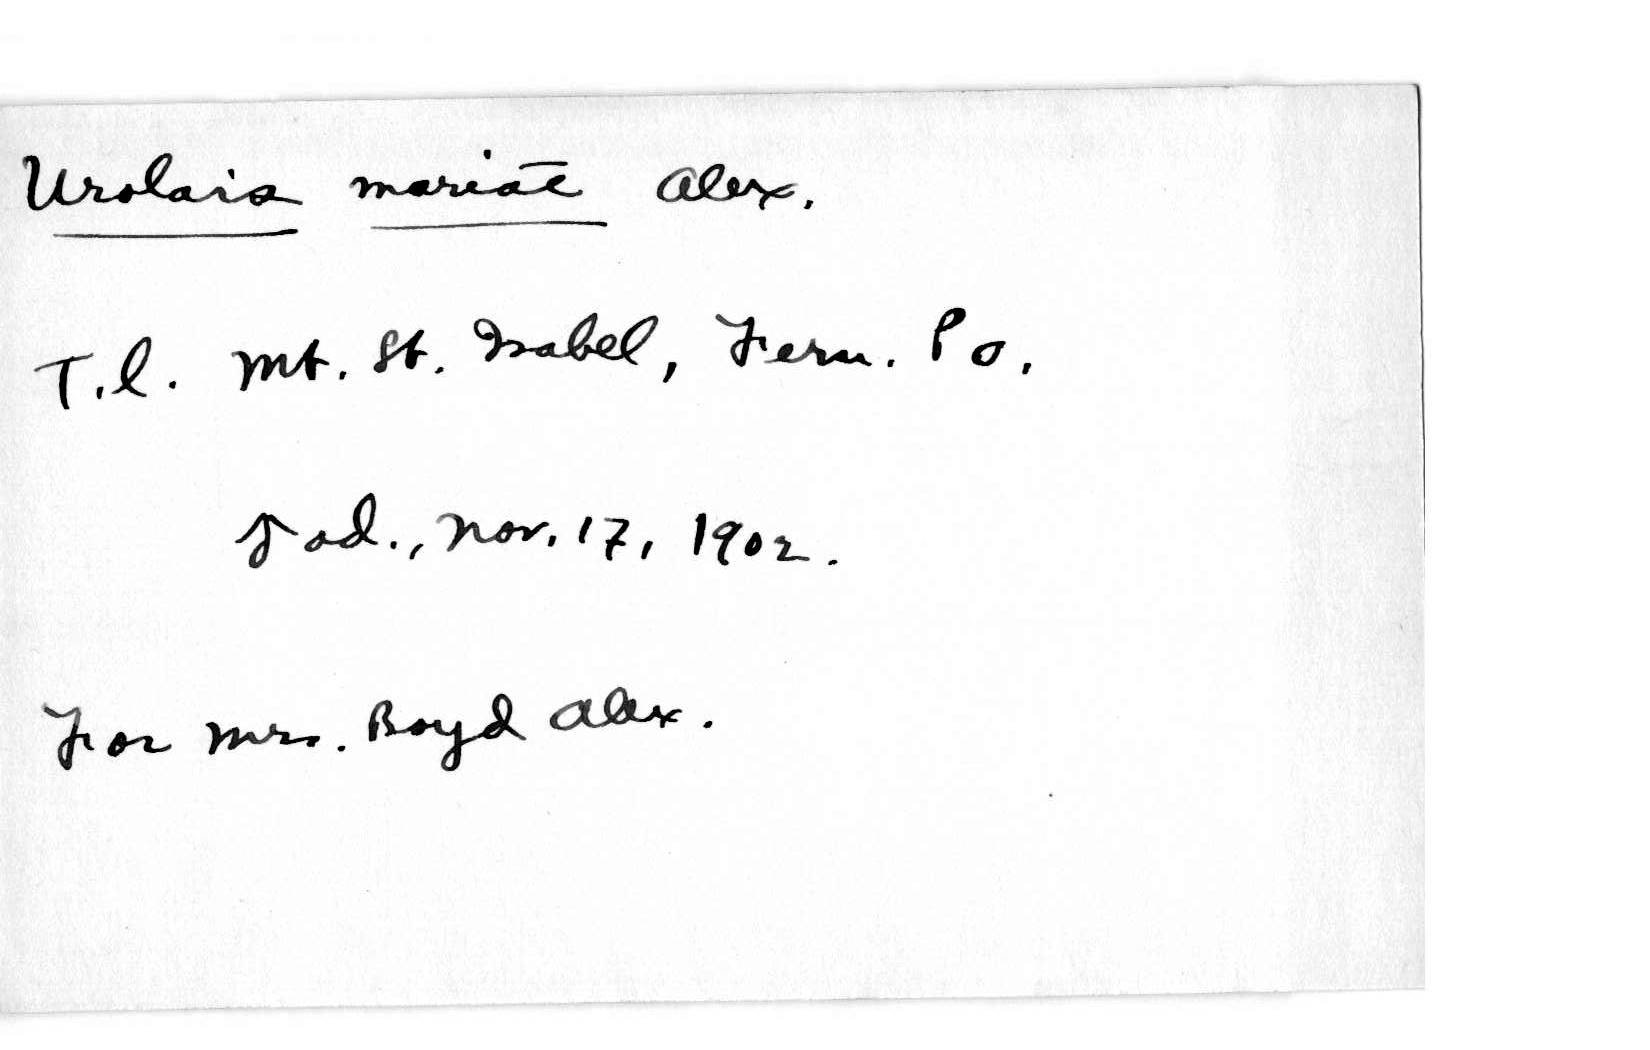 Urolais mariae Alex.
T.l. Mt. St. Isabel, Fern. Po.
♂ ad., Nov. 17, 1902.
For Mrs. Boyd Alex.